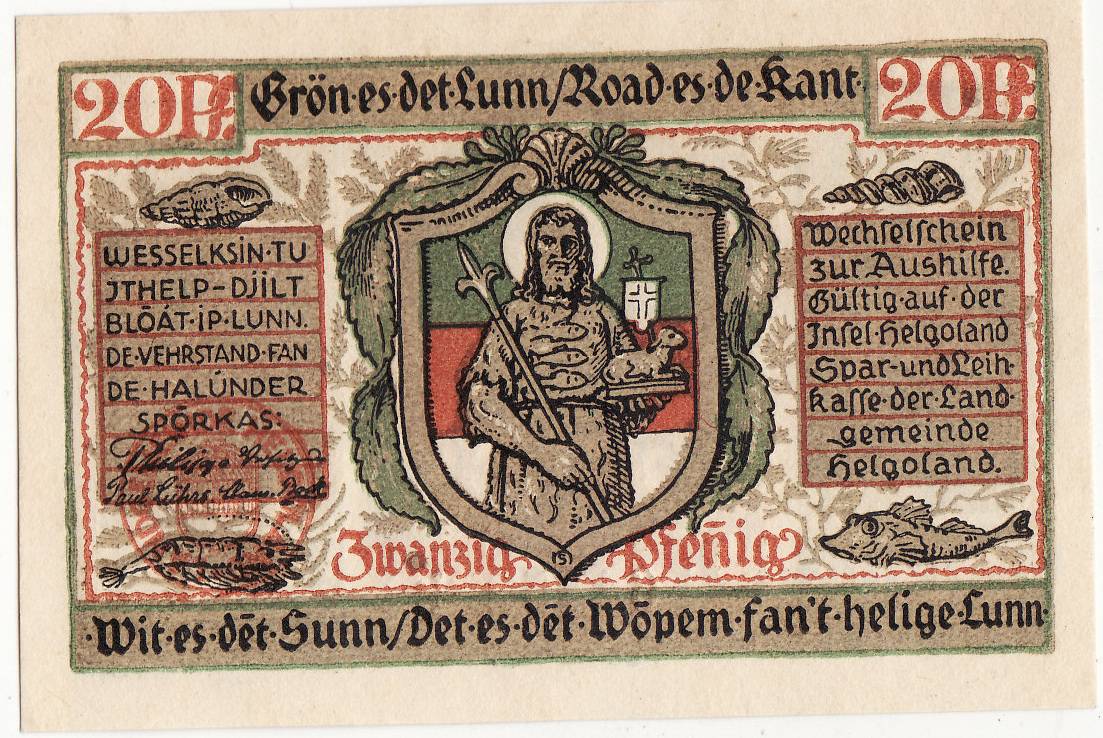 20Pf.
Grön·es·det·Lunn/Road·es·de·Kant·
20Pf.
WESSELKSIN·TU
JTHELP–DJILT
BLŌÁT·IP·LUNN.
DE·VEHRSTAND·FAN
DE·HALÚNDER
SPŌRKAS:
Paul Lührs
Wechselschein
zur Aushilfe.
Gültig·auf·der
Insel·Helgoland
Spar-und Leih-
kasse·der·Land-
gemeinde
Helgoland.
Zwanzig Pfen̄ig
·Wit·es·dēt·Sunn/Det·es·dēt·Wōpem·fan't·helige·Lunn·